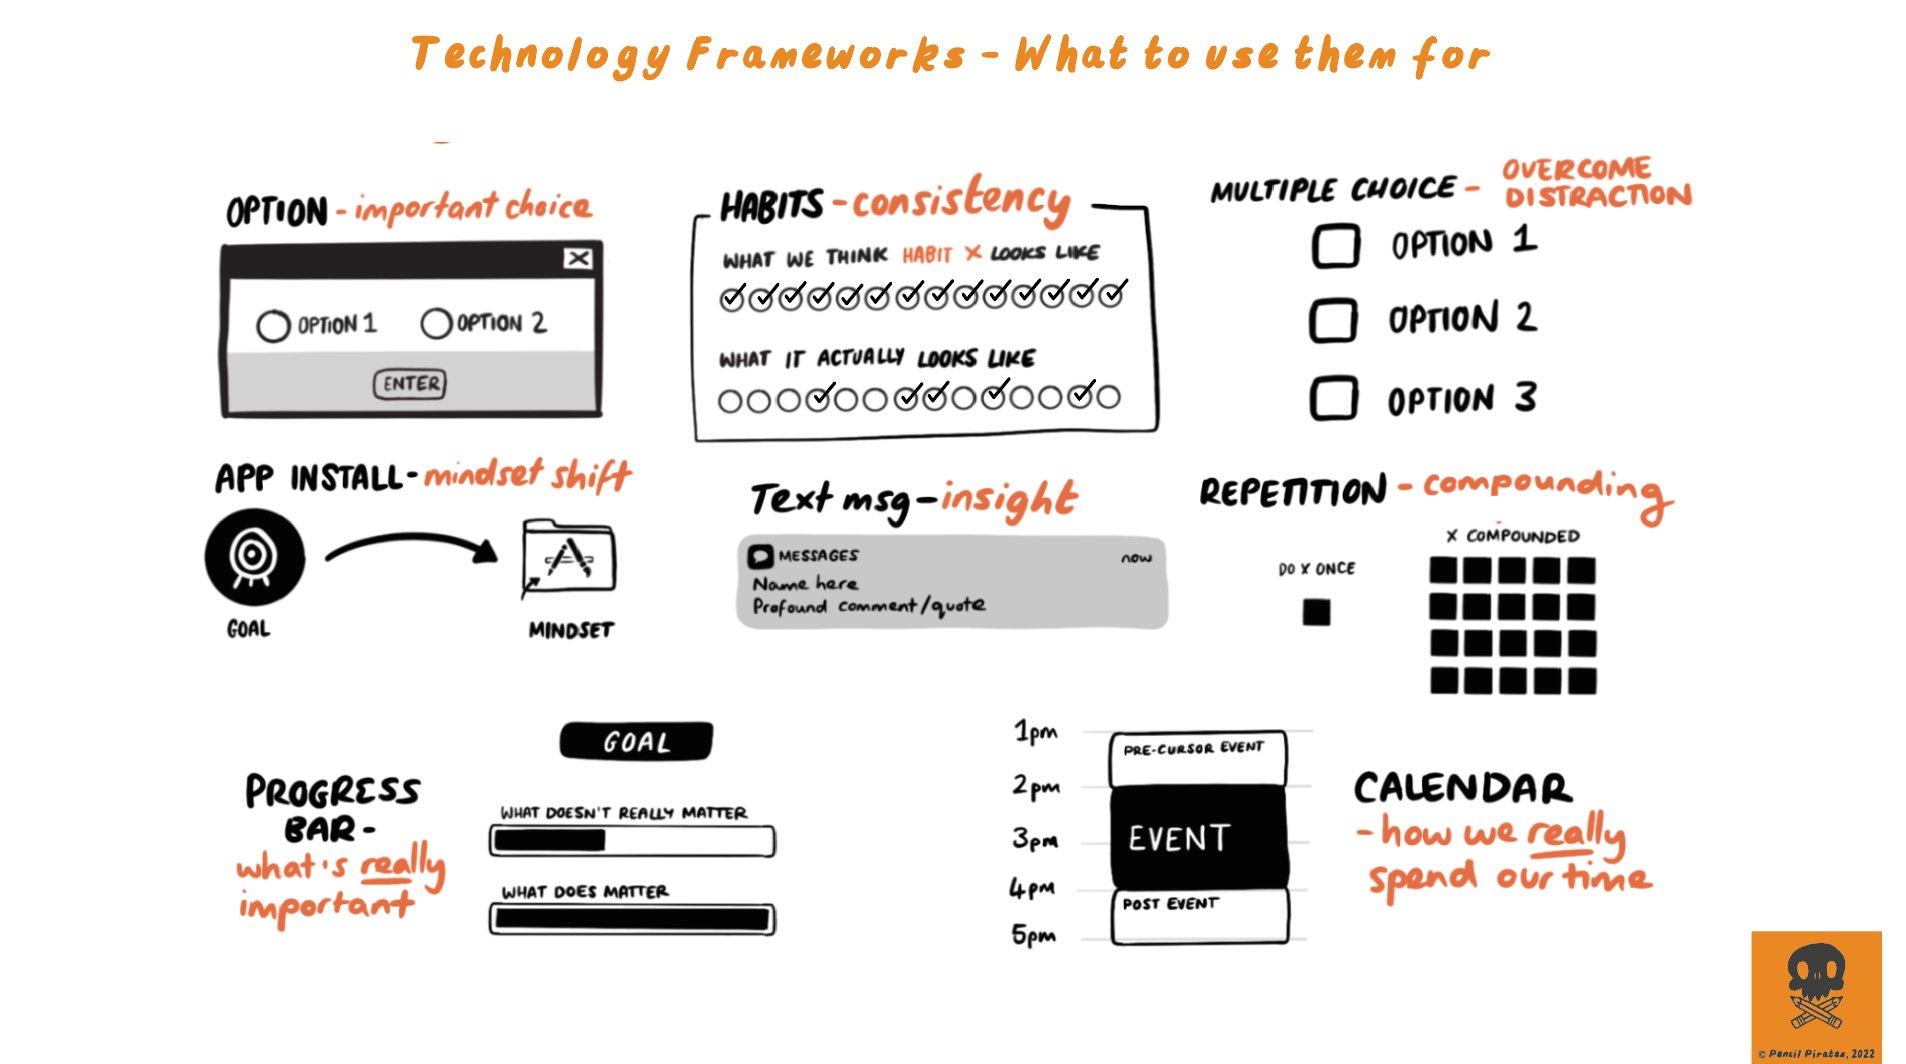 Technology Frameworks - What to use them for
OPTION - important choice
OPTION 1 OPTION 2
ENTER
HABITS - consistency
WHAT WE THINK HABIT X LOOKS LIKE
WHAT IT ACTUALLY LOOKS LIKE
MULTIPLE CHOICE - OVERCOME
DISTRACTION
OPTION 1
OPTION 2
OPTION 3
APP INSTALL - mindset shift
GOAL
MINDSET
Text msg - insight
MESSAGES now
Name here
Profound comment/quote
REPETITION - compounding
DO X ONCE
X COMPOUNDED
PROGRESS
BAR -
what's really
important
GOAL
WHAT DOESN'T REALLY MATTER
WHAT DOES MATTER
1pm
2pm
3pm
4pm
5pm
PRE-CURSOR EVENT
EVENT
POST EVENT
CALENDAR
- how we really
spend our time
© Pencil Pirates, 2022